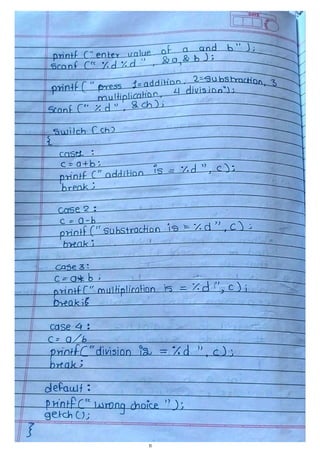 printf ("enter value of a and b");
scanf (" %d %d ", &a, & b );
printf (" press 1=addition, 2=substraction, 3
multiplication, 4 division");
scanf (" %d ", & ch);
switch (ch)
{
case1 :
c = a+b;
printf (" addition is = %d ", c);
break ;
case 2 :
c = a-b
printf (" substraction is = %d ", c) ;
break ;
case 3:
c = a* b ;
printf (" multiplication is = %d ", c);
break ;
case 4 :
c = a/b
printf ("division is = %d ", c);
break ;
default :
printf (" wrong choice ");
getch ();
}